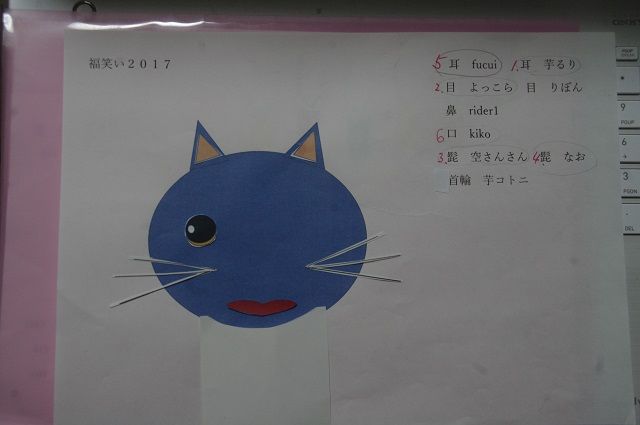 福笑い2017
5 耳 fucui 1. 耳 芋るり
2. 目 よっこら 目 りぼん
鼻 rider1
6 口 kiko
3. 髭 空さんさん 4. 髭 なお
首輪 芋コトニ
9
PGUP
6
→
3
PGDN
DEL